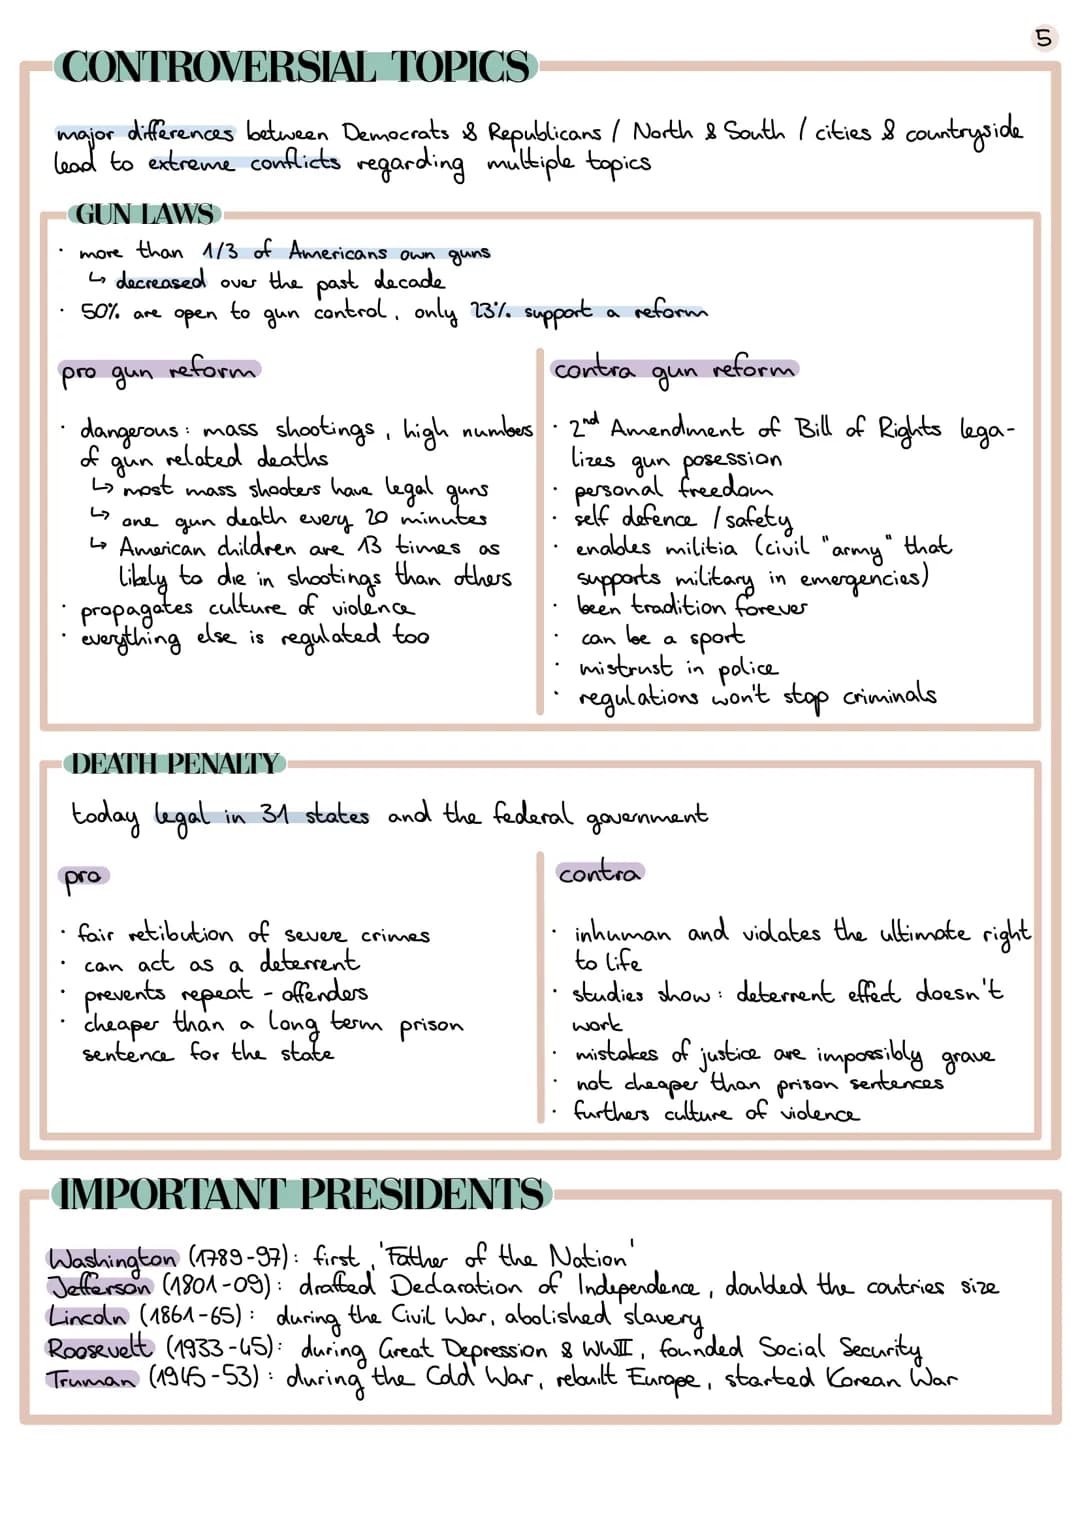 5
CONTROVERSIAL TOPICS
major differences between Democrats & Republicans / North & South / cities & countryside
lead to extreme conflicts regarding multiple topics
GUN LAWS
· more than 1/3 of Americans own guns
↳ decreased over the past decade
· 50% are open to gun control, only 23% support a reform
pro gun reform
· dangerous: mass shootings, high numbers
of gun related deaths
↳ most mass shooters have legal guns
↳ one gun death every 20 minutes
↳ American children are 13 times as
likely to die in shootings than others
· propagates culture of violence
· everything else is regulated too
contra gun reform
· 2nd Amendment of Bill of Rights lega-
lizes gun posession
· personal freedom
· self defence / safety
· enables militia (civil "army" that
supports military in emergencies)
· been tradition forever
· can be a sport
· mistrust in police
· regulations won't stop criminals
DEATH PENALTY
today legal in 31 states and the federal government
pro
· fair retibution of severe crimes
· can act as a deterrent
· prevents repeat - offenders
· cheaper than a long term prison
sentence for the state
contra
· inhuman and violates the ultimate right
to life
· studies show: deterrent effect doesn't
work
· mistakes of justice are impossibly grave
· not cheaper than prison sentences
· furthers culture of violence
IMPORTANT PRESIDENTS
Washington (1789-97): first, 'Father of the Nation'
Jefferson (1801-09): drafted Declaration of Independence, doubled the coutries size
Lincoln (1861-65): during the Civil War, abolished slavery
Roosevelt (1933-45): during Great Depression & WWII, founded Social Security
Truman (1945-53): during the Cold War, rebuilt Europe, started Korean War